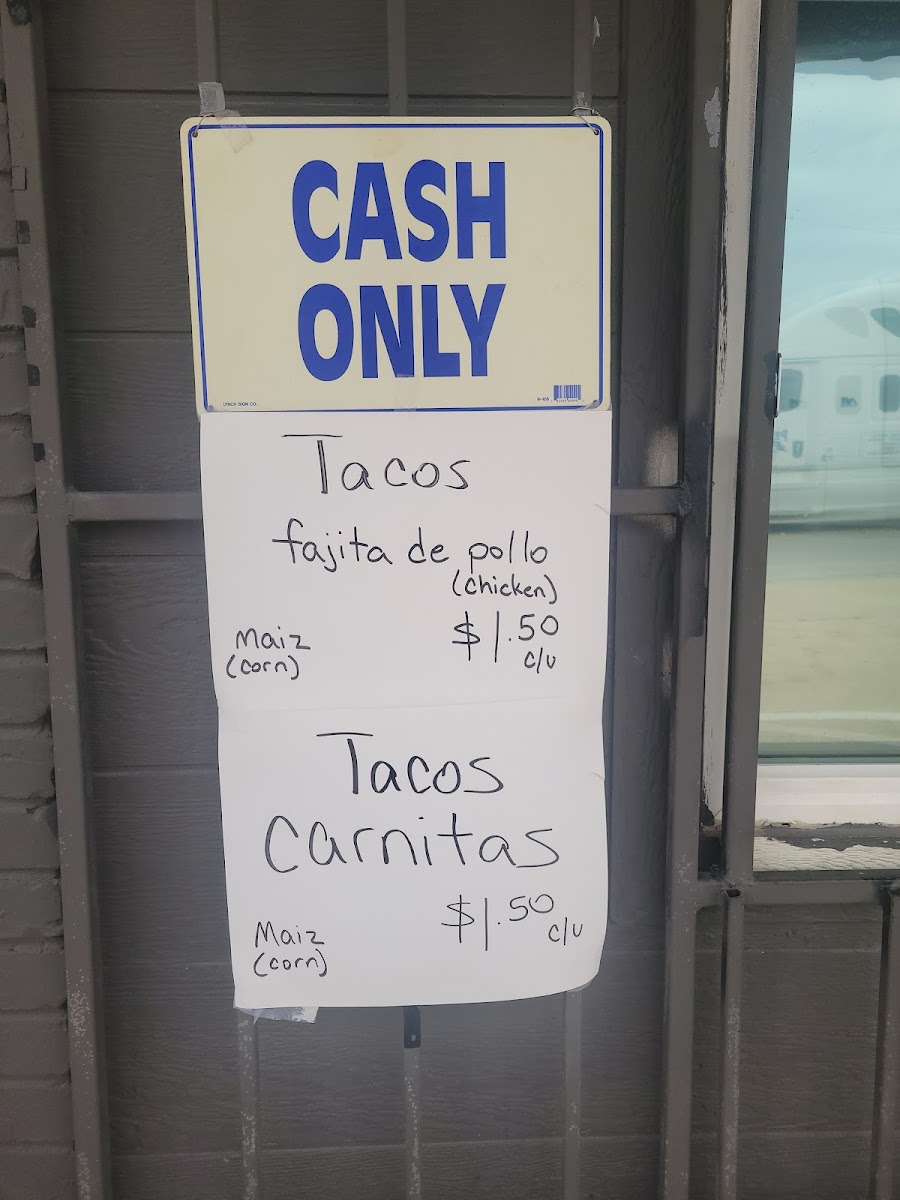 CASH
ONLY
LYNCH SIGN CO.
R-105
Tacos
fajita de pollo
(chicken)
Maiz
(corn)
$1.50
c/u
Tacos
Carnitas
Maiz
(corn)
$1.50
c/u